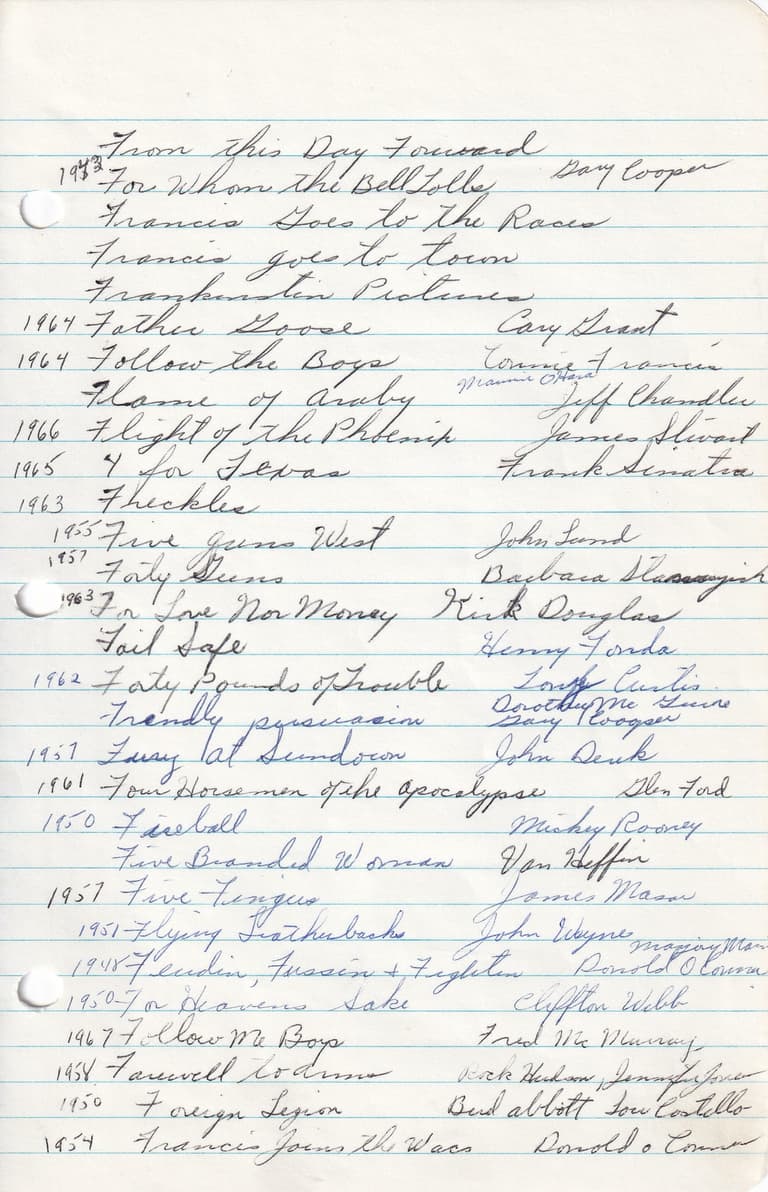 From this Day Forward
1943 For Whom the Bell Tolls Gary Cooper
Francis Goes to the Races
Francis goes to town
Frankenstin Pictures
1964 Father Goose Cary Grant
1964 Follow the Boys Connie Francis
Flame of Araby Maurine O'Hara Jeff Chandler
1966 Flight of the Phoenix James Stewart
1965 4 for Texas Frank Sinatra
1963 Freckles
1955 Five guns West John Lund
1957 Forty Guns Barbara
1963 For Love Nor Money Kirk Douglas
Fail Safe Henry Fonda
1962 Forty Pounds of Trouble Tony Curtis
Friendly persuasion Dorothy Mc Guire Gary Cooper
1957 Fury at Sundown John Derek
1961 Four Horsemen of the Apocalypse Glen Ford
1950 Fireball Mickey Rooney
Five Branded Woman Van Heflin
1957 Five Fingers James Mason
1951 Flying Leathernecks John Wayne
1948 Feudin, Fussin + Fightin Donald O'Connor Marjory Main
1950 For Heavens Sake Cliffton Webb
1967 Follow Me Boys Fred Mc Murray
1958 Farewell to arms Rock Hudson, Jennifer Jones
1950 Foreign Legion Bud abbott Lou Costello
1954 Francis Joins the Wacs Donald o Connor